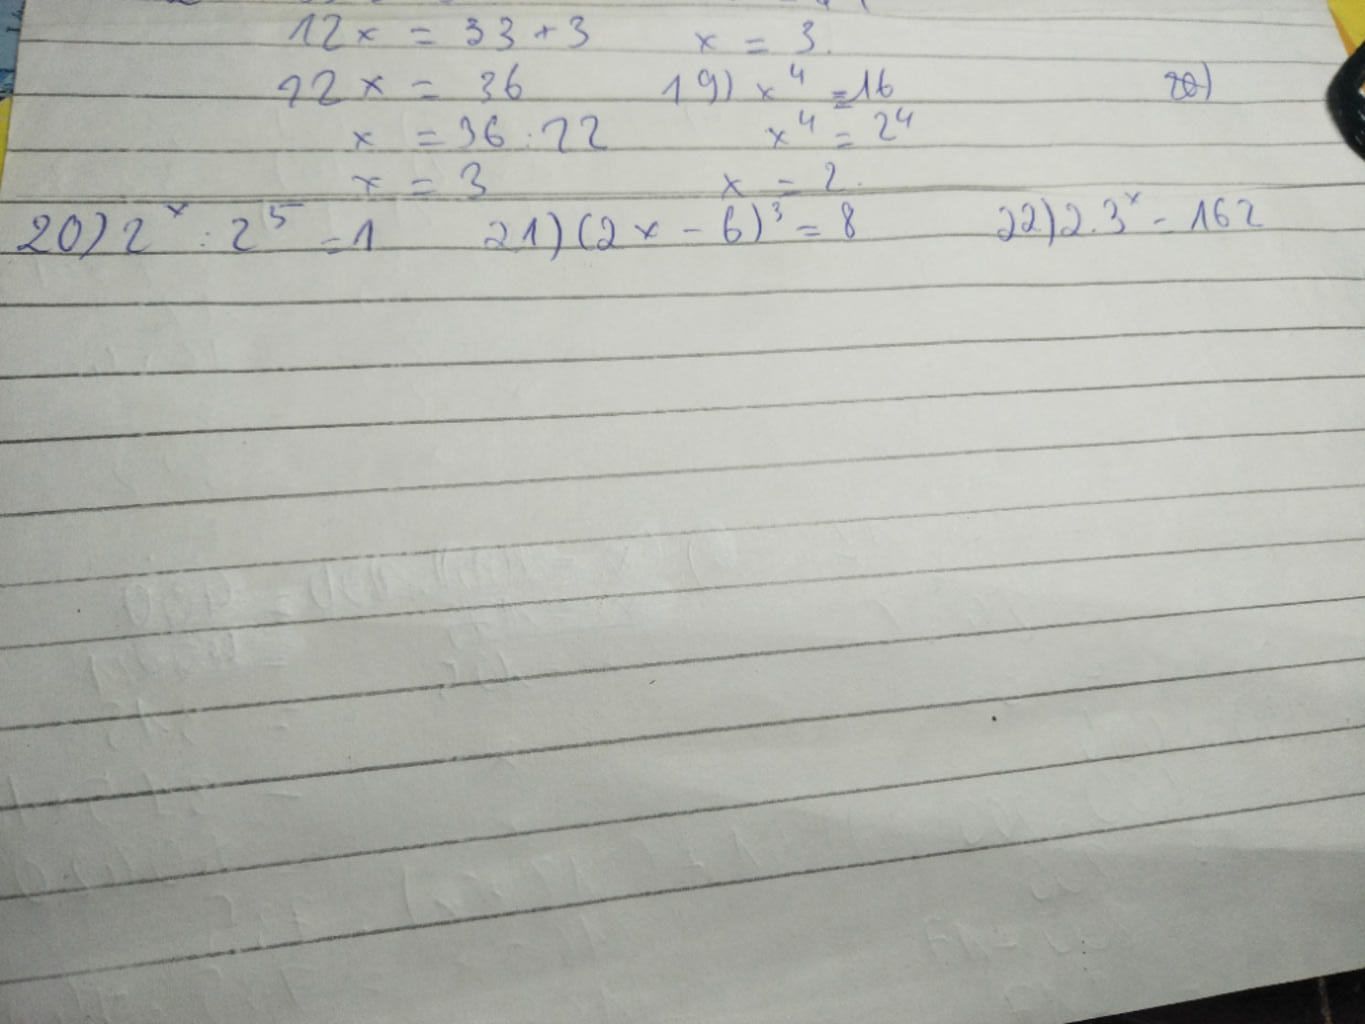 12x = 33 + 3    x = 3.
12x = 36    19) x⁴ = 16
x = 36 : 12    x⁴ = 2⁴
x = 3    x = 2.
20) 2ˣ : 2⁵ = 1    21) (2x - 6)³ = 8    22) 2.3ˣ = 162